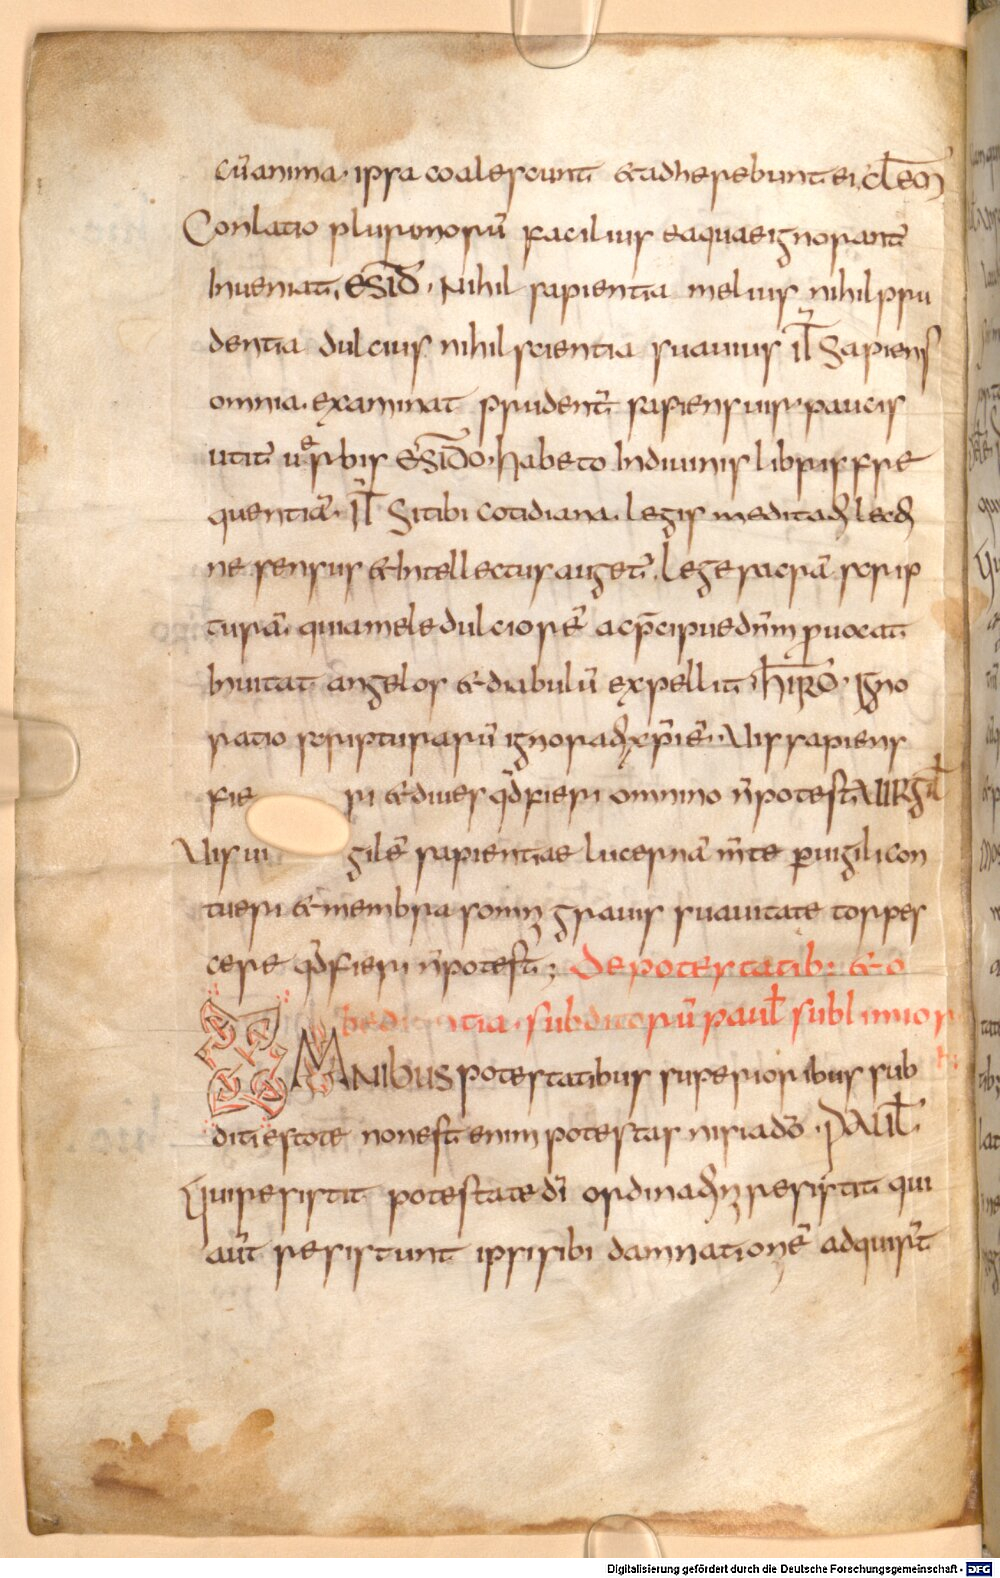 cū anima· ipsa coalescunt &adherebunt ei, clēm̄
Conlatio plurimorū facilius eaquae ignorant̄
Inueniat, ESID̄· Nihil sapientia melius nihil pru
dentia dulcius nihil scientia suauius il̄ Sapiens
omnia examinat prudent̄ sapiens uir paucis
utit̄ uerbis ESID̄O· habeto In diuinis libris fre
quentiā· il̄ Sitibi cotidiana legis meditað lecð
ne sensus & Intellectus auget̄. Lege sacrā scrip
turā· quia mele dulciorē acp̄cipue dn̄m ꝓuocat
Inuitat angelos & diabulū expellit hIRŌ· Igno
ratio scripturarū ignorað xp̄i ē· Uis sapiens
fie ri & diues qd̄ fieri omnino n̄potest UIRGIL̄
Uis ui gilē sapientiae lucernā m̄te ꝑuigili con
tueri & membra somnꝫ grauis suauitate torpes
cere qd̄ fieri n̄potest̄; De potestatib: & o
bedientia· subditorū paul̄ sublimior
OMNIBUS potestatibus superioribus sub
diti estote non est̄ enim potestas nisi a dō· PAUL̄
Qui resistit potestate dī ordinaðꝫ resistit qui
aūt resistunt ipsi sibi damnationē adquir̄t
Digitalisierung gefördert durch die Deutsche Forschungsgemeinschaft - DFG